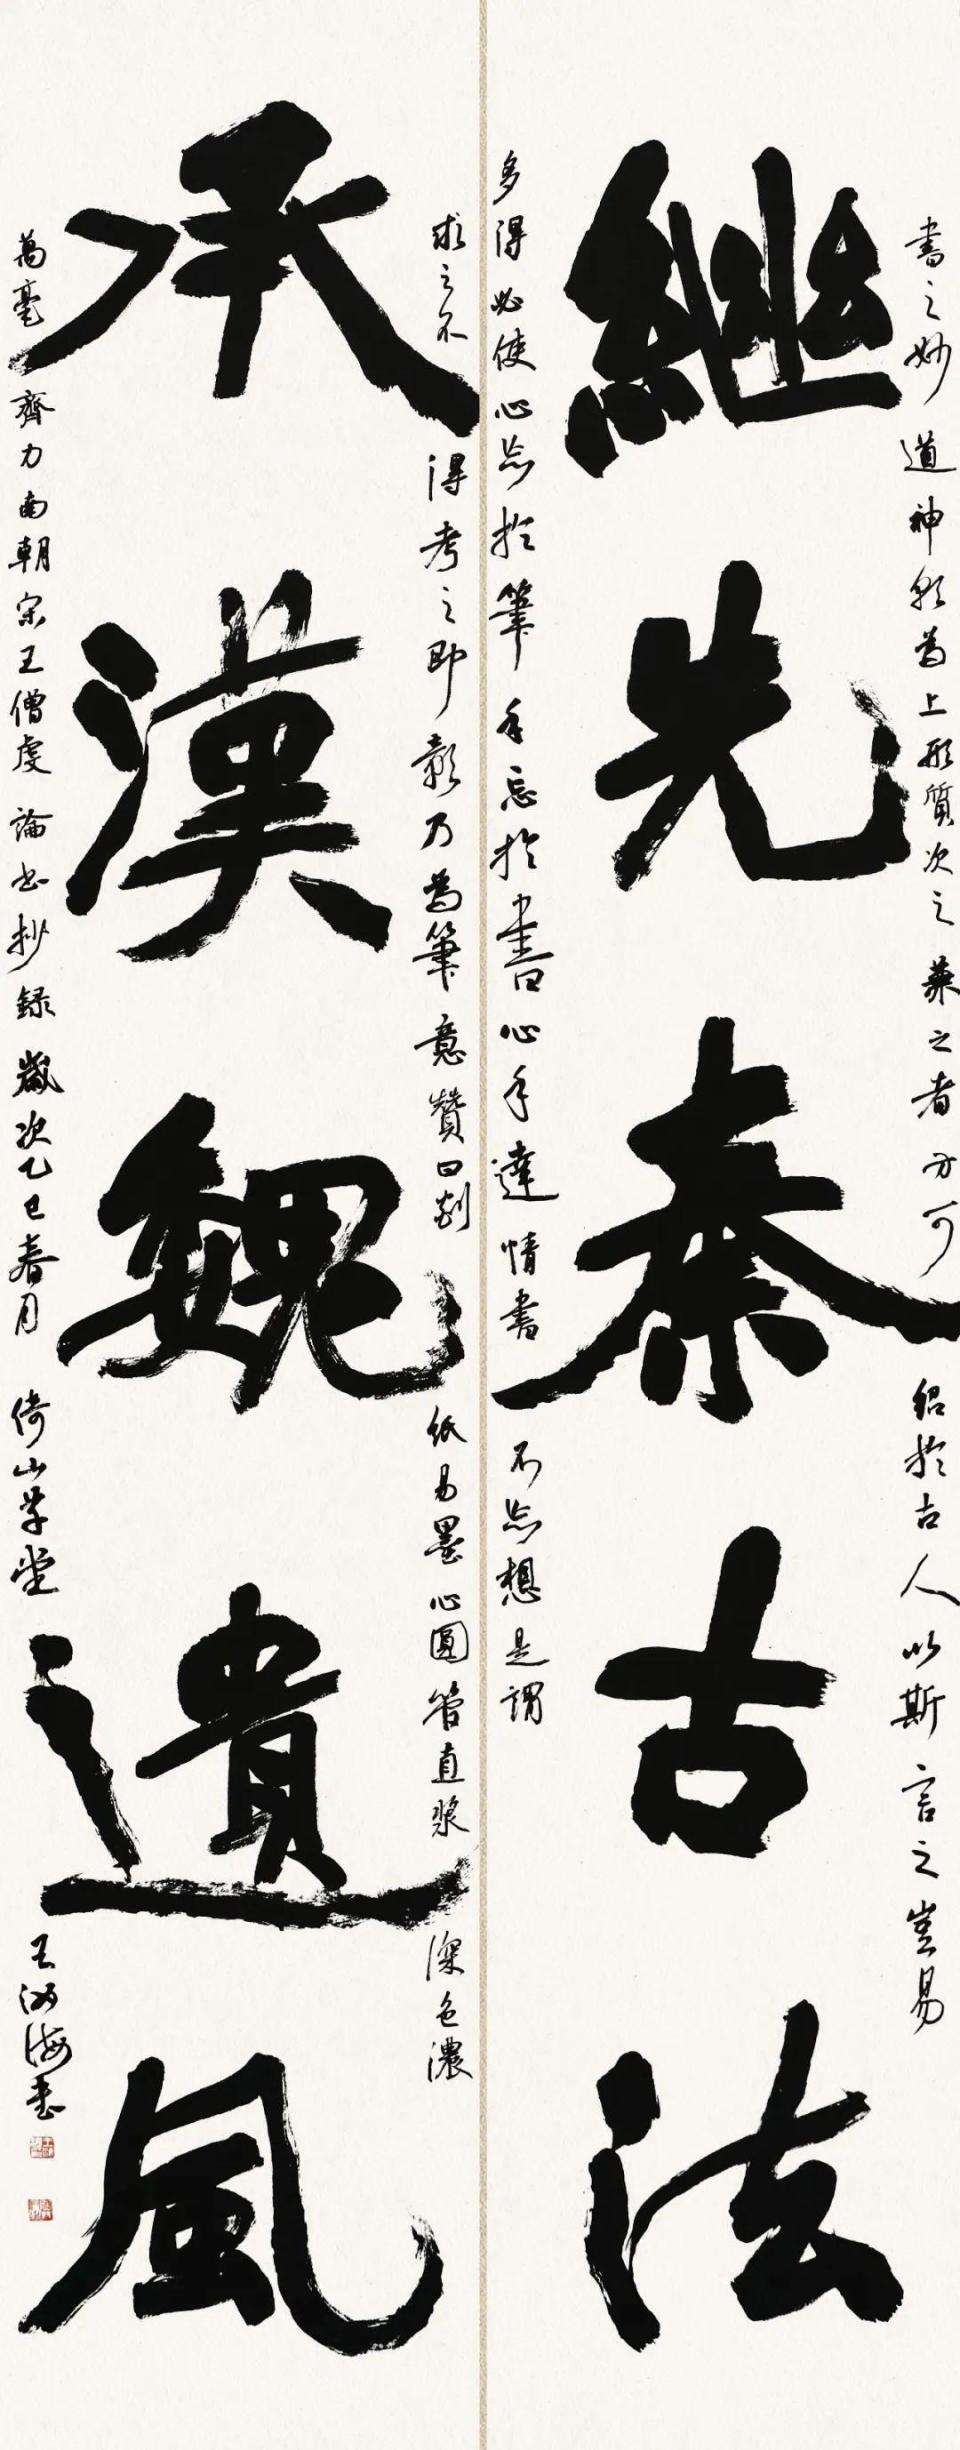 繼先秦古法
承漢魏遺風
書之妙道神彩為上形質次之兼之者方可紹於古人以斯言之豈易
多得必使心忘於筆手忘於書心手達情書不忘想是謂
求之不得考之即彰乃為筆意贊曰剡紙易墨心圓管直漿深色濃
萬毫齊力南朝宋王僧虔論書抄錄歲次乙巳春月倚山草堂王海書